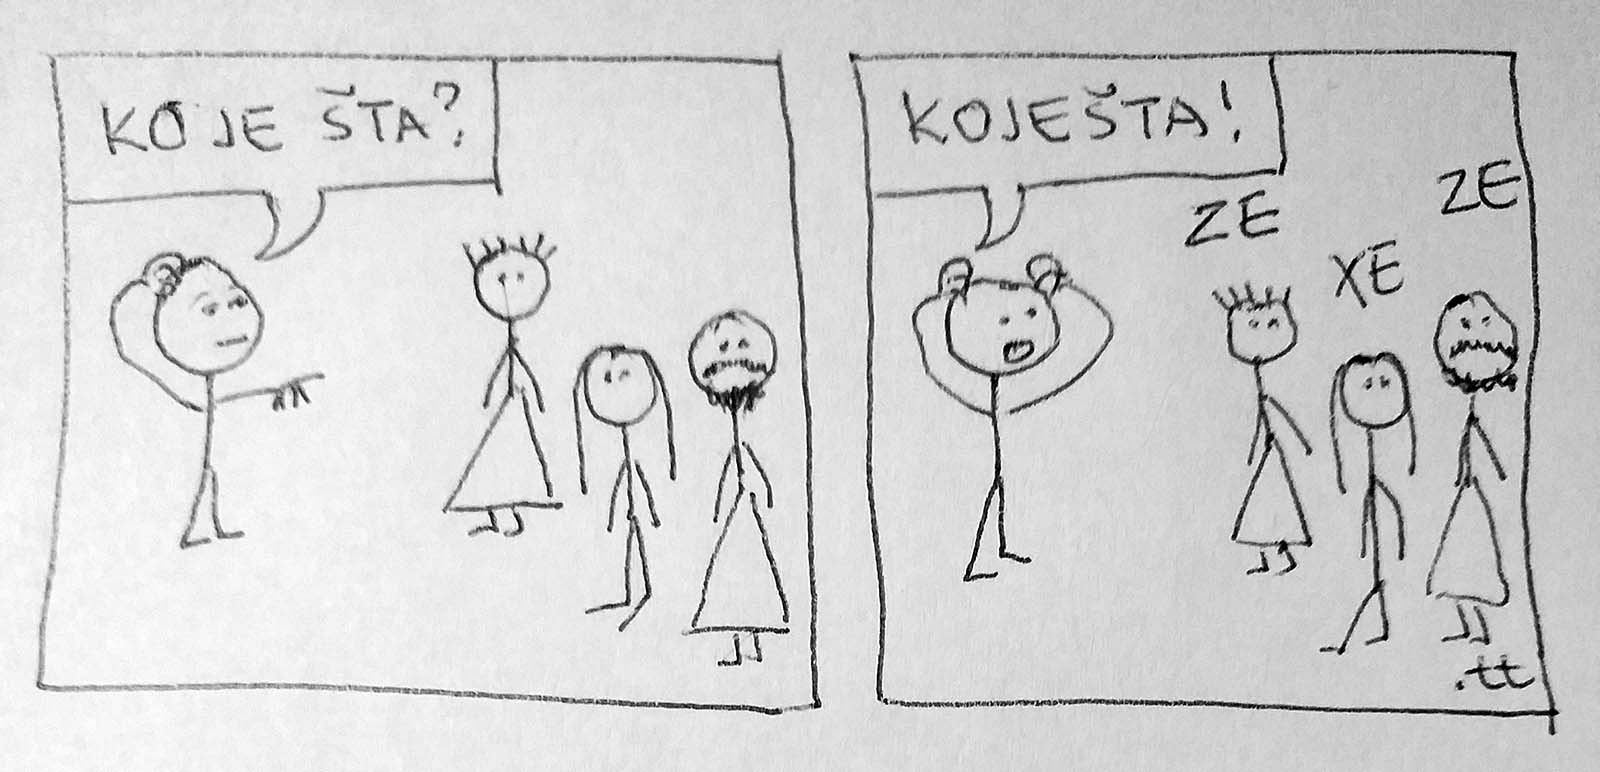 KO JE ŠTA?
KOJEŠTA!
ZE
XE
ZE
.tt